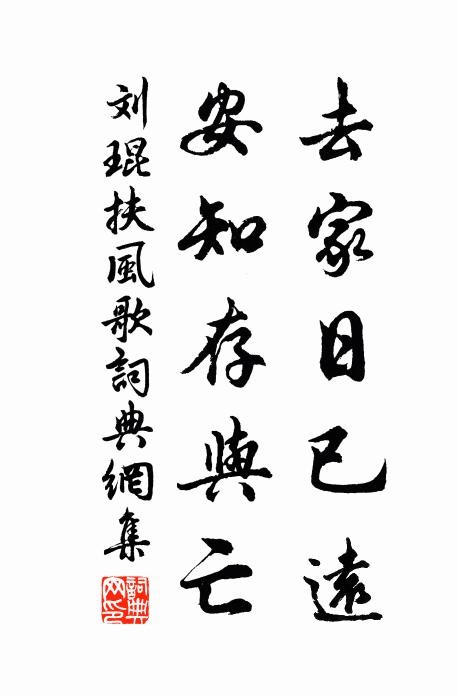 去家日已遠
安知存與亡
刘琨扶風歌詞典網集
詞典网印